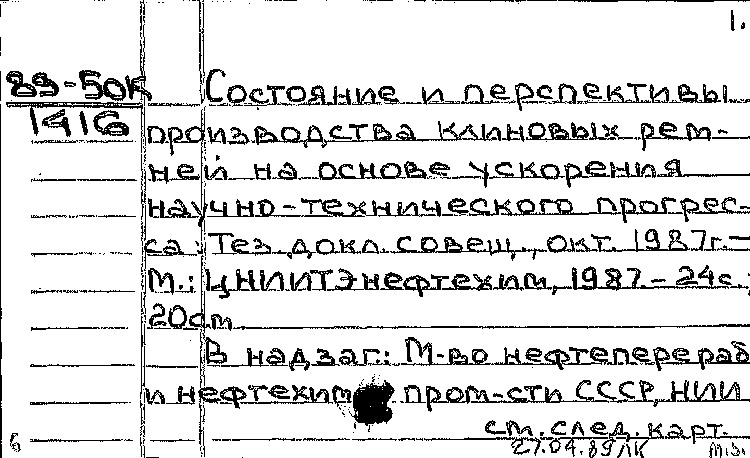 1.
89-50К Состояние и перспективы
1416 производства клиновых рем-
ней на основе ускорения
научно-технического прогрес-
са: Тез. докл. совещ., окт. 1987г. –
М.: ЦНИИТЭнефтехим, 1987. – 24с.;
20см.
В надзаг.: М-во нефтеперераб
и нефтехим. пром-сти СССР, НИИ
см. след. карт.
6 27.04.89 ЛК м.з.